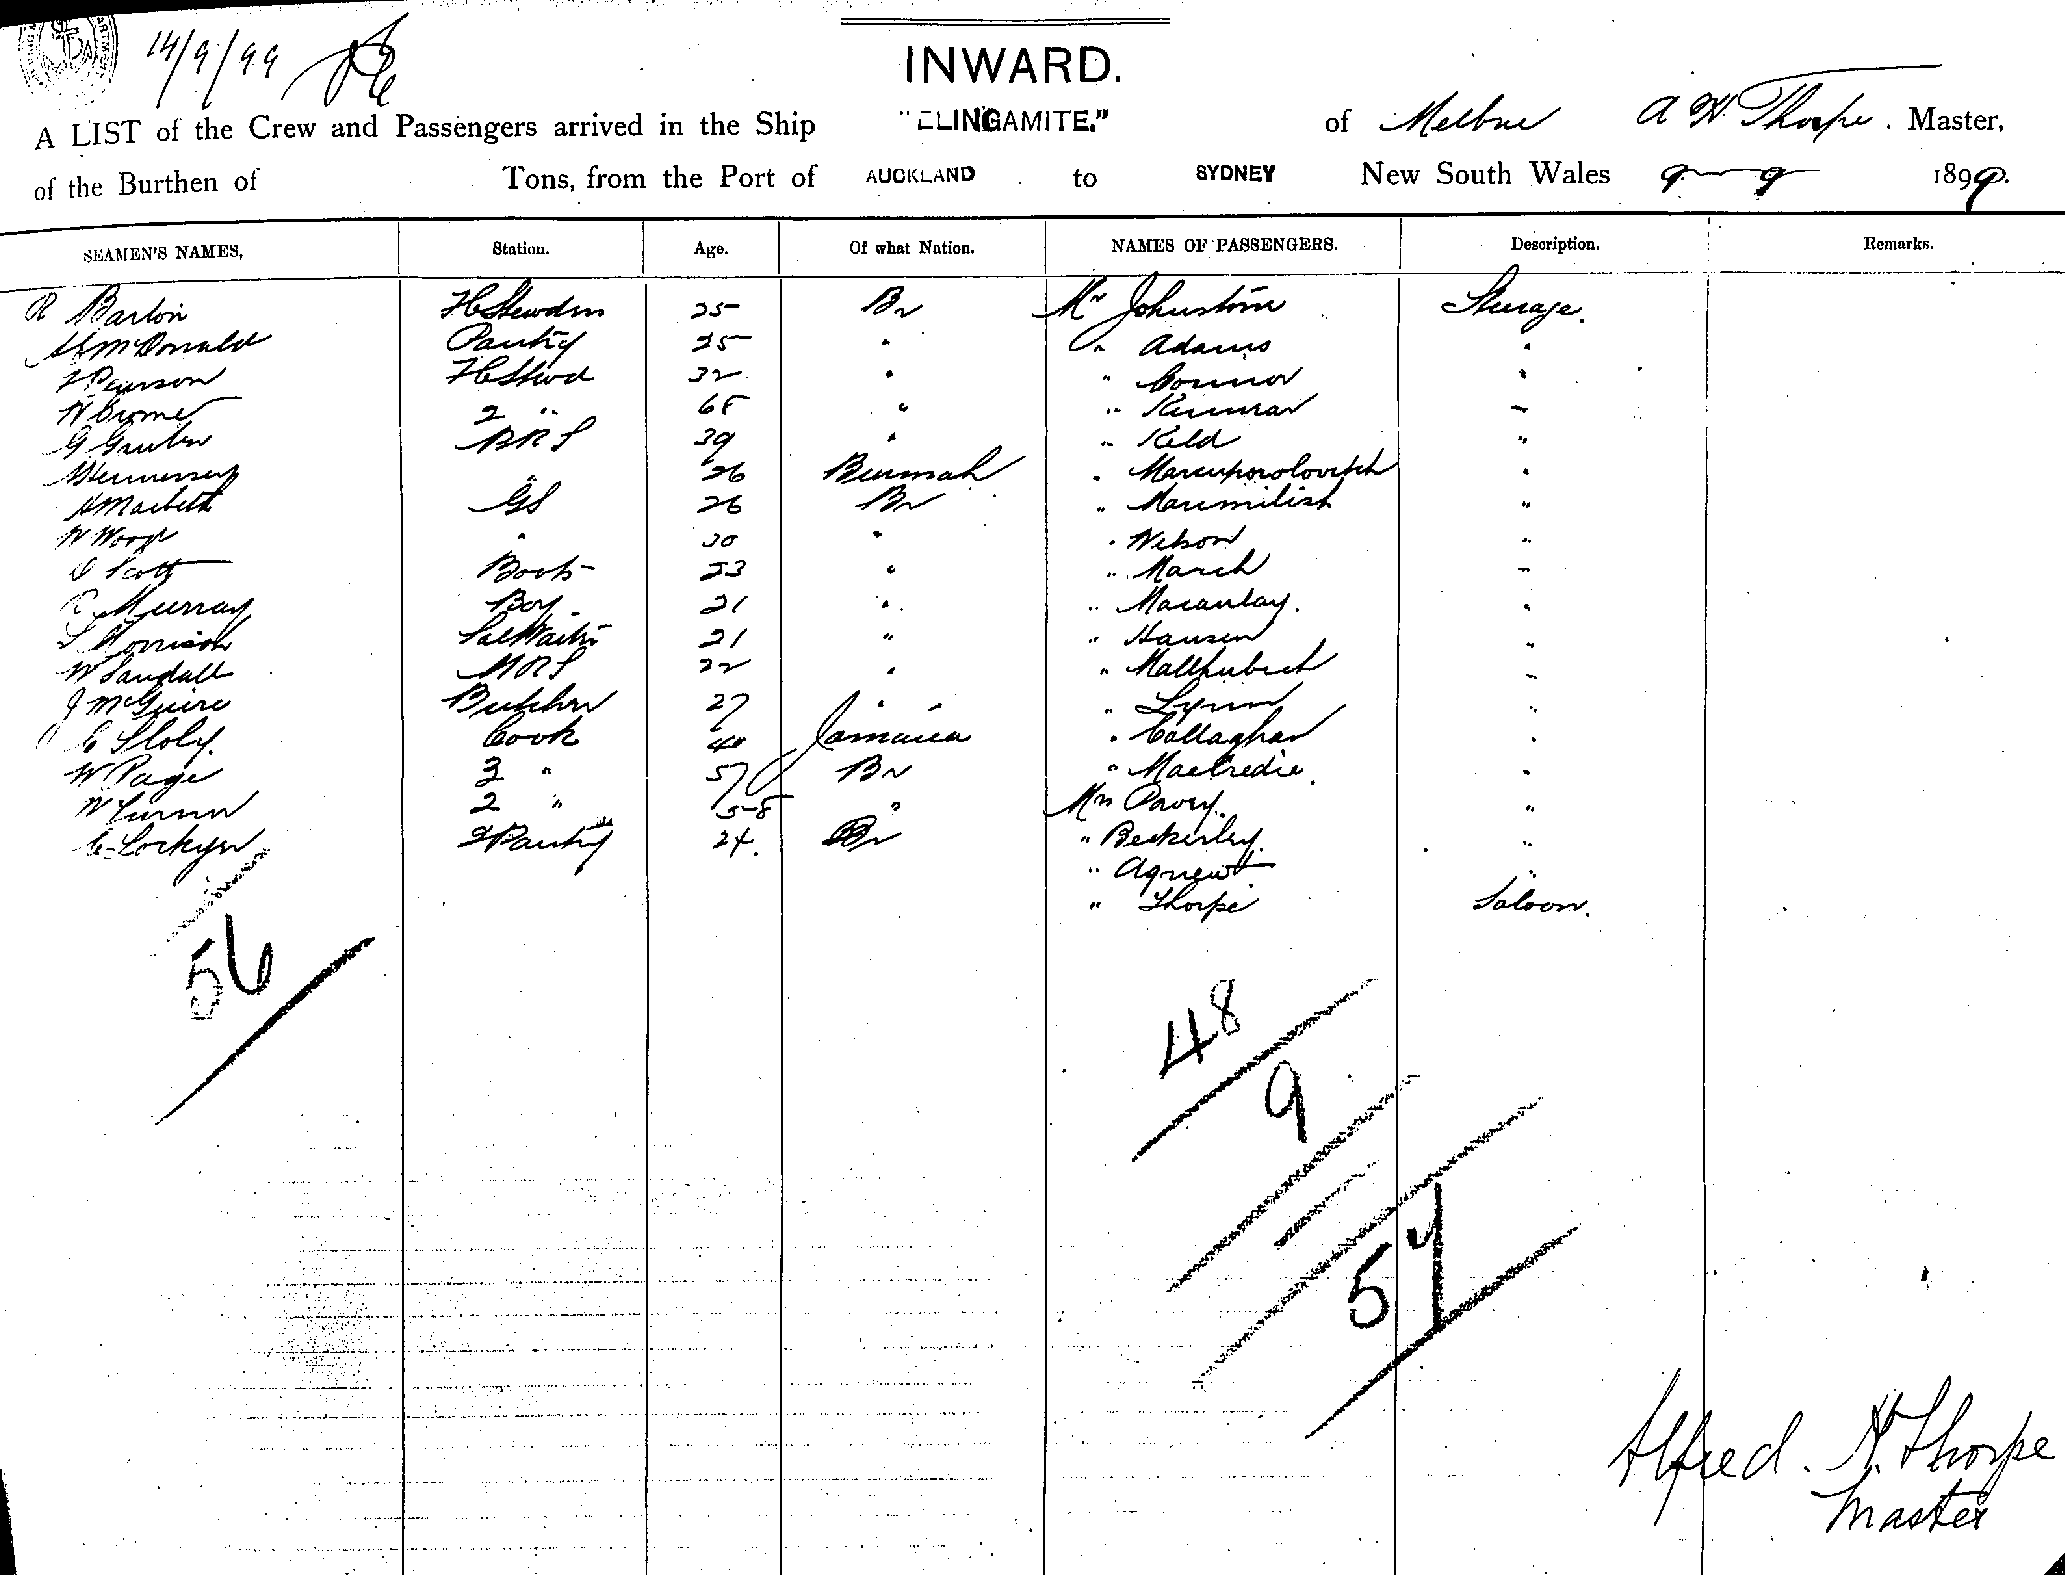 14/9/99
INWARD.
A LIST of the Crew and Passengers arrived in the Ship "ELINGAMITE." of Melbne A W Thorpe. Master,
of the Burthen of Tons, from the Port of AUCKLAND to SYDNEY New South Wales 9 - 9 1899.
SEAMEN'S NAMES, Station. Age. Of what Nation. NAMES OF PASSENGERS. Description. Remarks.
R Barton 25 Br Mr Johnstone Steerage.
McDonald Pantry 25 " " Adams "
Pearson 32 " " Connor "
W Cromer 2 " 68 " "
G BRS 39 " " Keld "
Hennessey 26 Burmah "
H Macbeth GS 26 Br "
W Wood " 30 " " Nelson "
Scott Boots 23 " " March "
R Murray Boy 21 " " Macaulay. "
Morrison 21 " " Hansen "
W Sandall MRS 22 " "
J McGuire Butcher 27 " " Lynn "
C Cook 40 Jamaica " Callaghan "
W Page 3 " 57 Br " MacCredie "
W Turner 2 " 58 " Mrs Pavey. "
C Lockyer 2 Pantry 24. Br " Beckerley. "
" Agnew "
" Thorpe Saloon.
56
48
9
57
Alfred W. Thorpe
Master